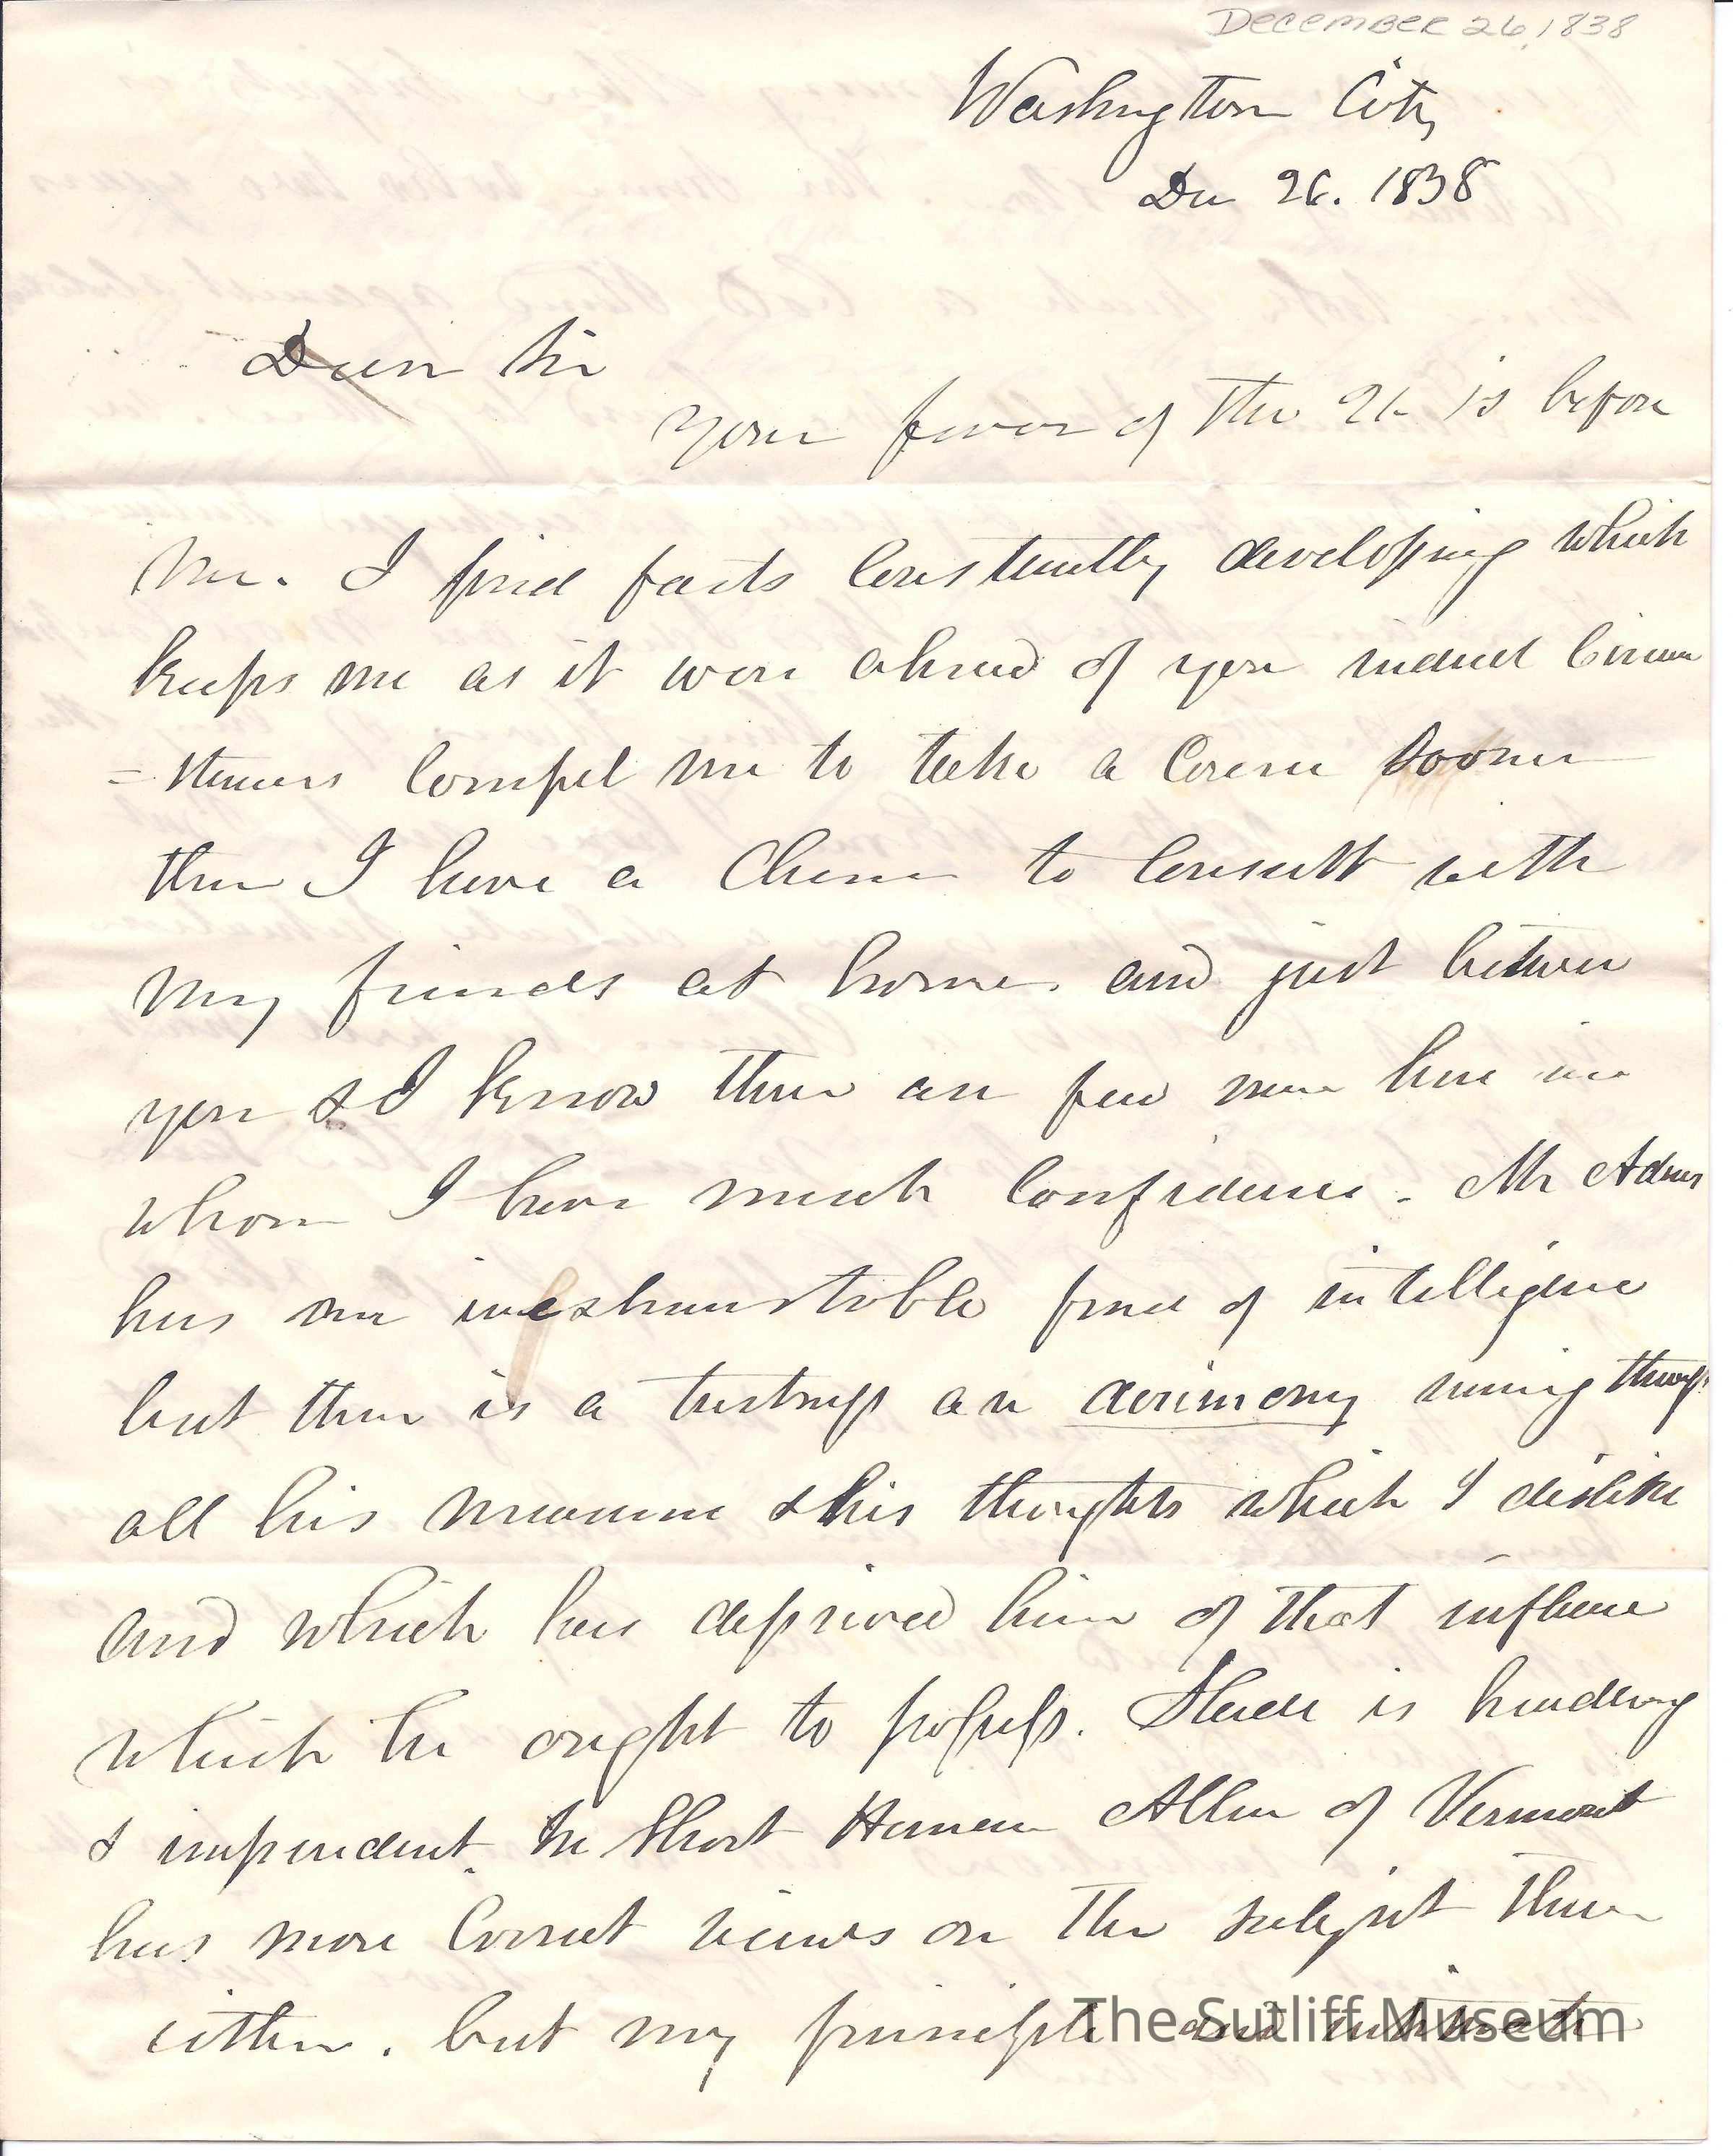 December 26, 1838
Washington City
Dec 26. 1838
Dear Sir
your favor of the is before
me. I find facts constantly developing which
keeps me as it were ahead of you indeed circum
=stances compel me to take a course sooner
than I have a chance to consult with
my friends at home. and just between
you & I know there are few men here in
whom I have much confidence. Mr Adams
has an inexhaustable fund of intelligence
but there is a an acrimony runing through
all his & his thoughts which I dislike
and which has deprived him of that influence
which he ought to possess. Slade is
& impudent. In short Heman Allen of Vermont
has more correct views on the subject than
either. but my principle and intimate
The Sutliff Museum